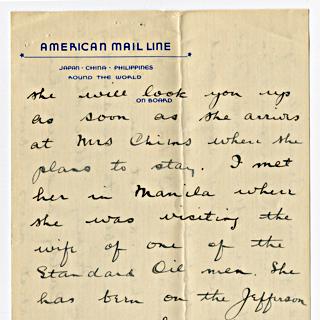 AMERICAN MAIL LINE
JAPAN · CHINA · PHILIPPINES
ROUND THE WORLD
ON BOARD
she will look you up
as soon as she arrives
at Mrs Chinns where she
plans to stay. I met
her in Manila where
she was visiting the
wife of one of the
Standard Oil men. She
has been on the Jefferson